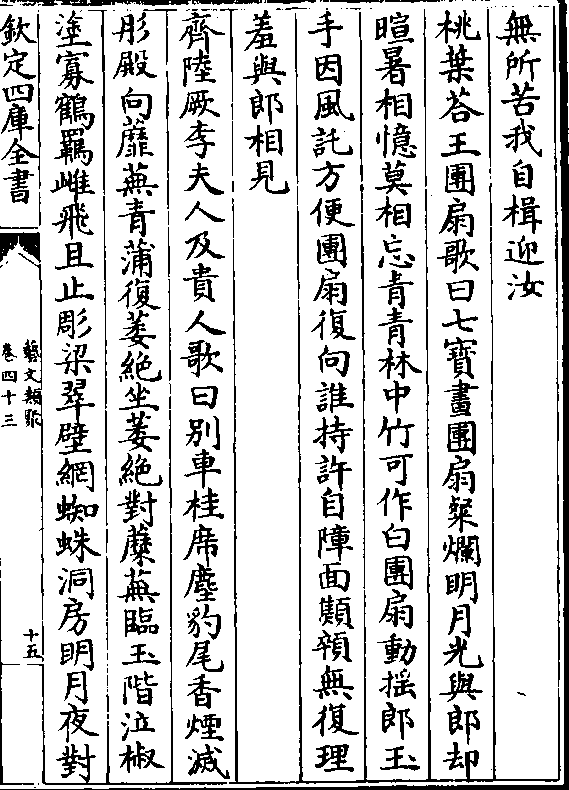 無所苦我自楫迎汝
桃葉荅王團扇歌曰七寶畫團扇粲爛明月光與郎却
暄暑相憶莫相忘青青林中竹可作白團扇動揺郎玉
手因風託方便團扇復向誰持許自障面顦顇無復理
羞與郎相見
齊陸厥李夫人及貴人歌曰別車桂席塵豹尾香煙滅
彤殿向蘼蕪青蒲復萎絶坐萎絶對蘼蕪臨玉階泣椒
塗寡鶴羈雌飛且止彫梁翠壁網蜘蛛洞房明月夜對
欽定四庫全書
藝文類聚
卷四十三
十五